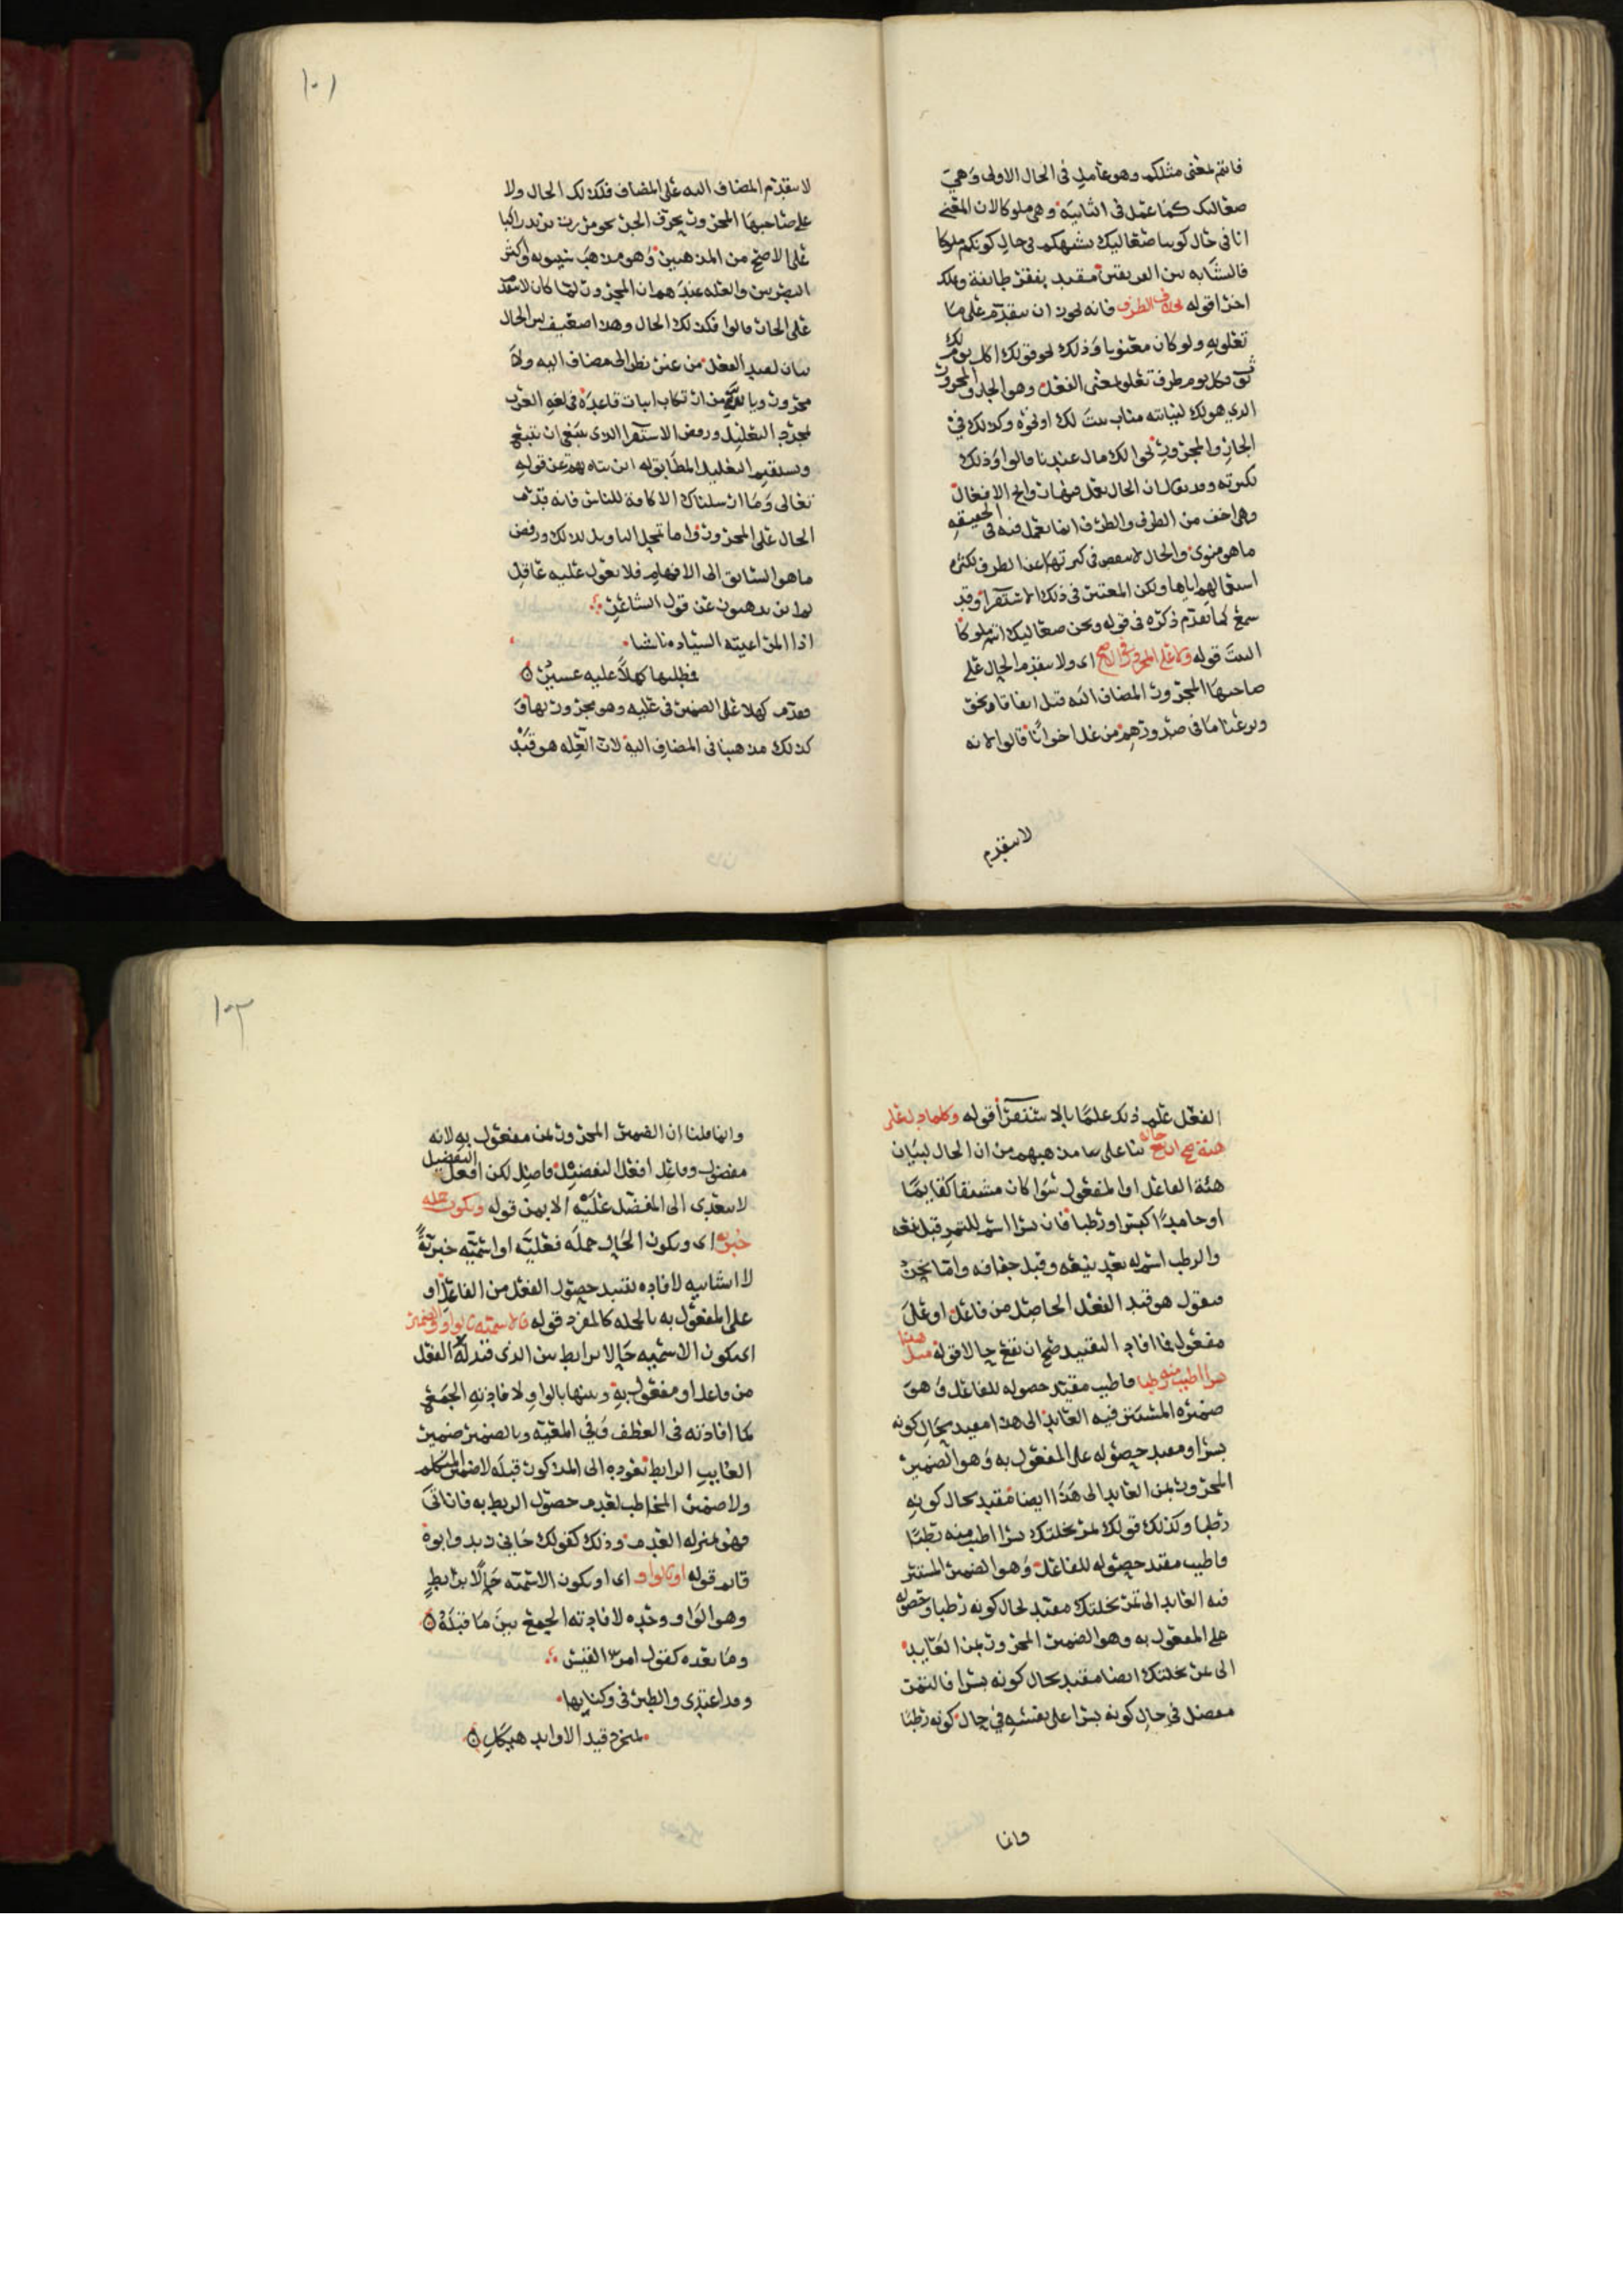 فانتم لمعنى مثلكم وهو عامل فى الحال الاولى وهي
صعاليك كما عمل فى الثانية وهى ملوكا لان المعنى
انا فى حال كوننا صعاليك نشبهكم فى حال كونكم ملوكا
فالتشابه بين الفريقين مقيد بفقر طائفة وملك
اخرا قوله بخلاف الظرف فانه يجوز ان يتقدم على ما
تعلق به ولو كان معنويا وذلك نحو قولك اكل يوم لك
ثوب فكل يوم ظرف تعلق بمعنى الفعل وهو الجار والمجرور
الذي هو لك لنيابته مناب ثبت لك او نحوه وكذلك في
الجار والمجرور نحو الك مال عندنا قالوا وذلك
لكثرته وقد يقال ان الحال يعمل فيها روائح الافعال
وهي اخف من الظرف والظرف انما يعمل فيه فى الحقيقه
ما هو منوى والحال لا ينقص فى كثرتها عن الظرف لكثره
استعمالهم اياها ولكن المعتبر فى ذلك الاستقرا وقد
سمع كما تقدم ذكره فى قوله ونحن صعاليك انتم ملوكا
البيت قوله ولا على المجرور فى الاصح اى ولا يتقدم الحال على
صاحبها المجرور المضاف اليه قبل اتفاقا ونحو
ونزعنا ما فى صدورهم من غل اخوانا قالوا لانه
لا يتقدم
١٠١
لا يتقدم المضاف اليه على المضاف فكذلك الحال ولا
على صاحبها المجرور بحرف الجر نحو مررت بزيد راكبا
على الاصح من المذهبين وهو مذهب سيبويه واكثر
البصريين والعله عندهم ان المجرور لما كان لا يتقدم
على الجار قالوا فكذلك الحال وهذا ضعيف لان الحال
بيان لقيد الفعل من غير نظر الى مضاف اليه ولا
مجرور وبالله من ارتكاب اثبات قاعدة فى لغه العرب
بمجرد التعليل ورفض الاستقرا الذى ينبغى ان يتبع
ويستقيم التعليل المطابق له اين تاه بهم عن قوله
تعالى وما ارسلناك الا كافة للناس فانه قدم
الحال على المجرور واما تمحل التاويل لذلك ورفض
ما هو السابق الى الافهام فلا يعول عليه عاقل
ثم اين يذهبون عن قول الشاعر
اذا المرء اعيته السياده ناشيا
فطلبها كهلا عليه عسير
فقدم كهلا على الضمير فى عليه وهو مجرور بها و
كذلك مذهبنا فى المضاف اليه لان العله هو قيد
الفعل علم ذلك علما بالاستقرا قوله وكلما دل على
هيئة صح ان يقع حالا بنا على ما مذهبهم من ان الحال لبيان
هئة الفاعل او المفعول سوا كان مشتقا كقائما
او جامدا كبسرا ورطبا فان بسرا اسم للتمر قبل ينعه
والرطب اسم له بعد ينعه وقبل جفافه واما نحن
فنقول هو قيد الفعل الحاصل من فاعل او على
مفعول فما افاد التقييد صح ان يقع حالا قوله مثل هذا
بسرا اطيب منه رطبا فاطيب مقيد حصوله للفاعل وهو
ضميره المستتر فيه العايد الى هذا مقيد بحال كونه
بسرا ومقيد حصوله على المفعول به وهو الضمير
المجرور بمن العايد الى هذا ايضا مقيد بحال كونه
رطبا وكذلك قولك تمر نخلتك بسرا اطيب منه رطبا
فاطيب مقيد حصوله للفاعل وهو الضمير المستتر
فيه العايد الى تمر نخلتك مقيد لحال كونه رطبا وحصوله
على المفعول به وهو الضمير المجرور بمن العايد
الى تمر نخلتك ايضا مقيد بحال كونه بسرا فالتمر
مفضل في حال كونه بسرا على نفسه في حال كونه رطبا
وانما
١٠٢
وانما قلنا ان الضمير المجرور بمن مفعول به لانه
مفضول وفاعل افعل التفضيل فاضل لكن افعل التفضيل
لا يتعدى الى المفضل عليه الا بمن قوله وتكون جمله
خبريه اى ويكون الحال جمله فعليه او اسميه خبرية
لا انشائيه لافاده تقييد حصول الفعل من الفاعل او
على المفعول به بالجمله كالمفرد قوله فالاسمية بالواو والضمير
اى يكون الاسميه حالا برابط بين الذى قيد له الفعل
من فاعل او مفعول به وبينها بالواو لافادته الجمع
كما افادته فى العطف وفي المعية وبالضمير ضمير
الغايب الرابط تعوده الى المذكور قبله لا ضمير المتكلم
ولا ضمير المخاطب لعدم حصول الربط به فان اتى
فهو بمنزله العدم وذلك كقولك جانى زيد وابوه
قائم قوله او بالواو اى او يكون الاسمية حالا برابط
وهو الواو وحده لافادته الجمع بين ما قبله
وما بعده كقول امرء القيس
وقد اغتدى والطير فى وكناتها
بمنجرد قيد الاوابد هيكل